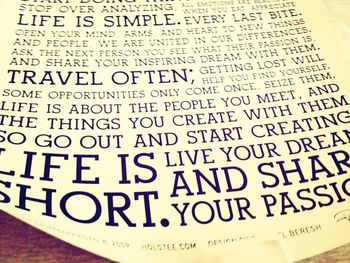 START DOING THINGS
STOP OVER ANALYZING, ALL EMOTIONS ARE
LIFE IS SIMPLE. WHEN YOU EAT, APPRECIATE EVERY LAST BITE.
OPEN YOUR MIND, ARMS, AND HEART TO NEW THINGS
AND PEOPLE, WE ARE UNITED IN OUR DIFFERENCES.
ASK THE NEXT PERSON YOU SEE WHAT THEIR PASSION IS,
AND SHARE YOUR INSPIRING DREAM WITH THEM.
TRAVEL OFTEN; GETTING LOST WILL HELP YOU FIND YOURSELF.
SOME OPPORTUNITIES ONLY COME ONCE, SEIZE THEM.
LIFE IS ABOUT THE PEOPLE YOU MEET, AND
THE THINGS YOU CREATE WITH THEM
SO GO OUT AND START CREATING
LIFE IS SHORT. LIVE YOUR DREAM AND SHAR YOUR PASSIO
© 2009 HOLSTEE.COM DESIGN BY BERESH